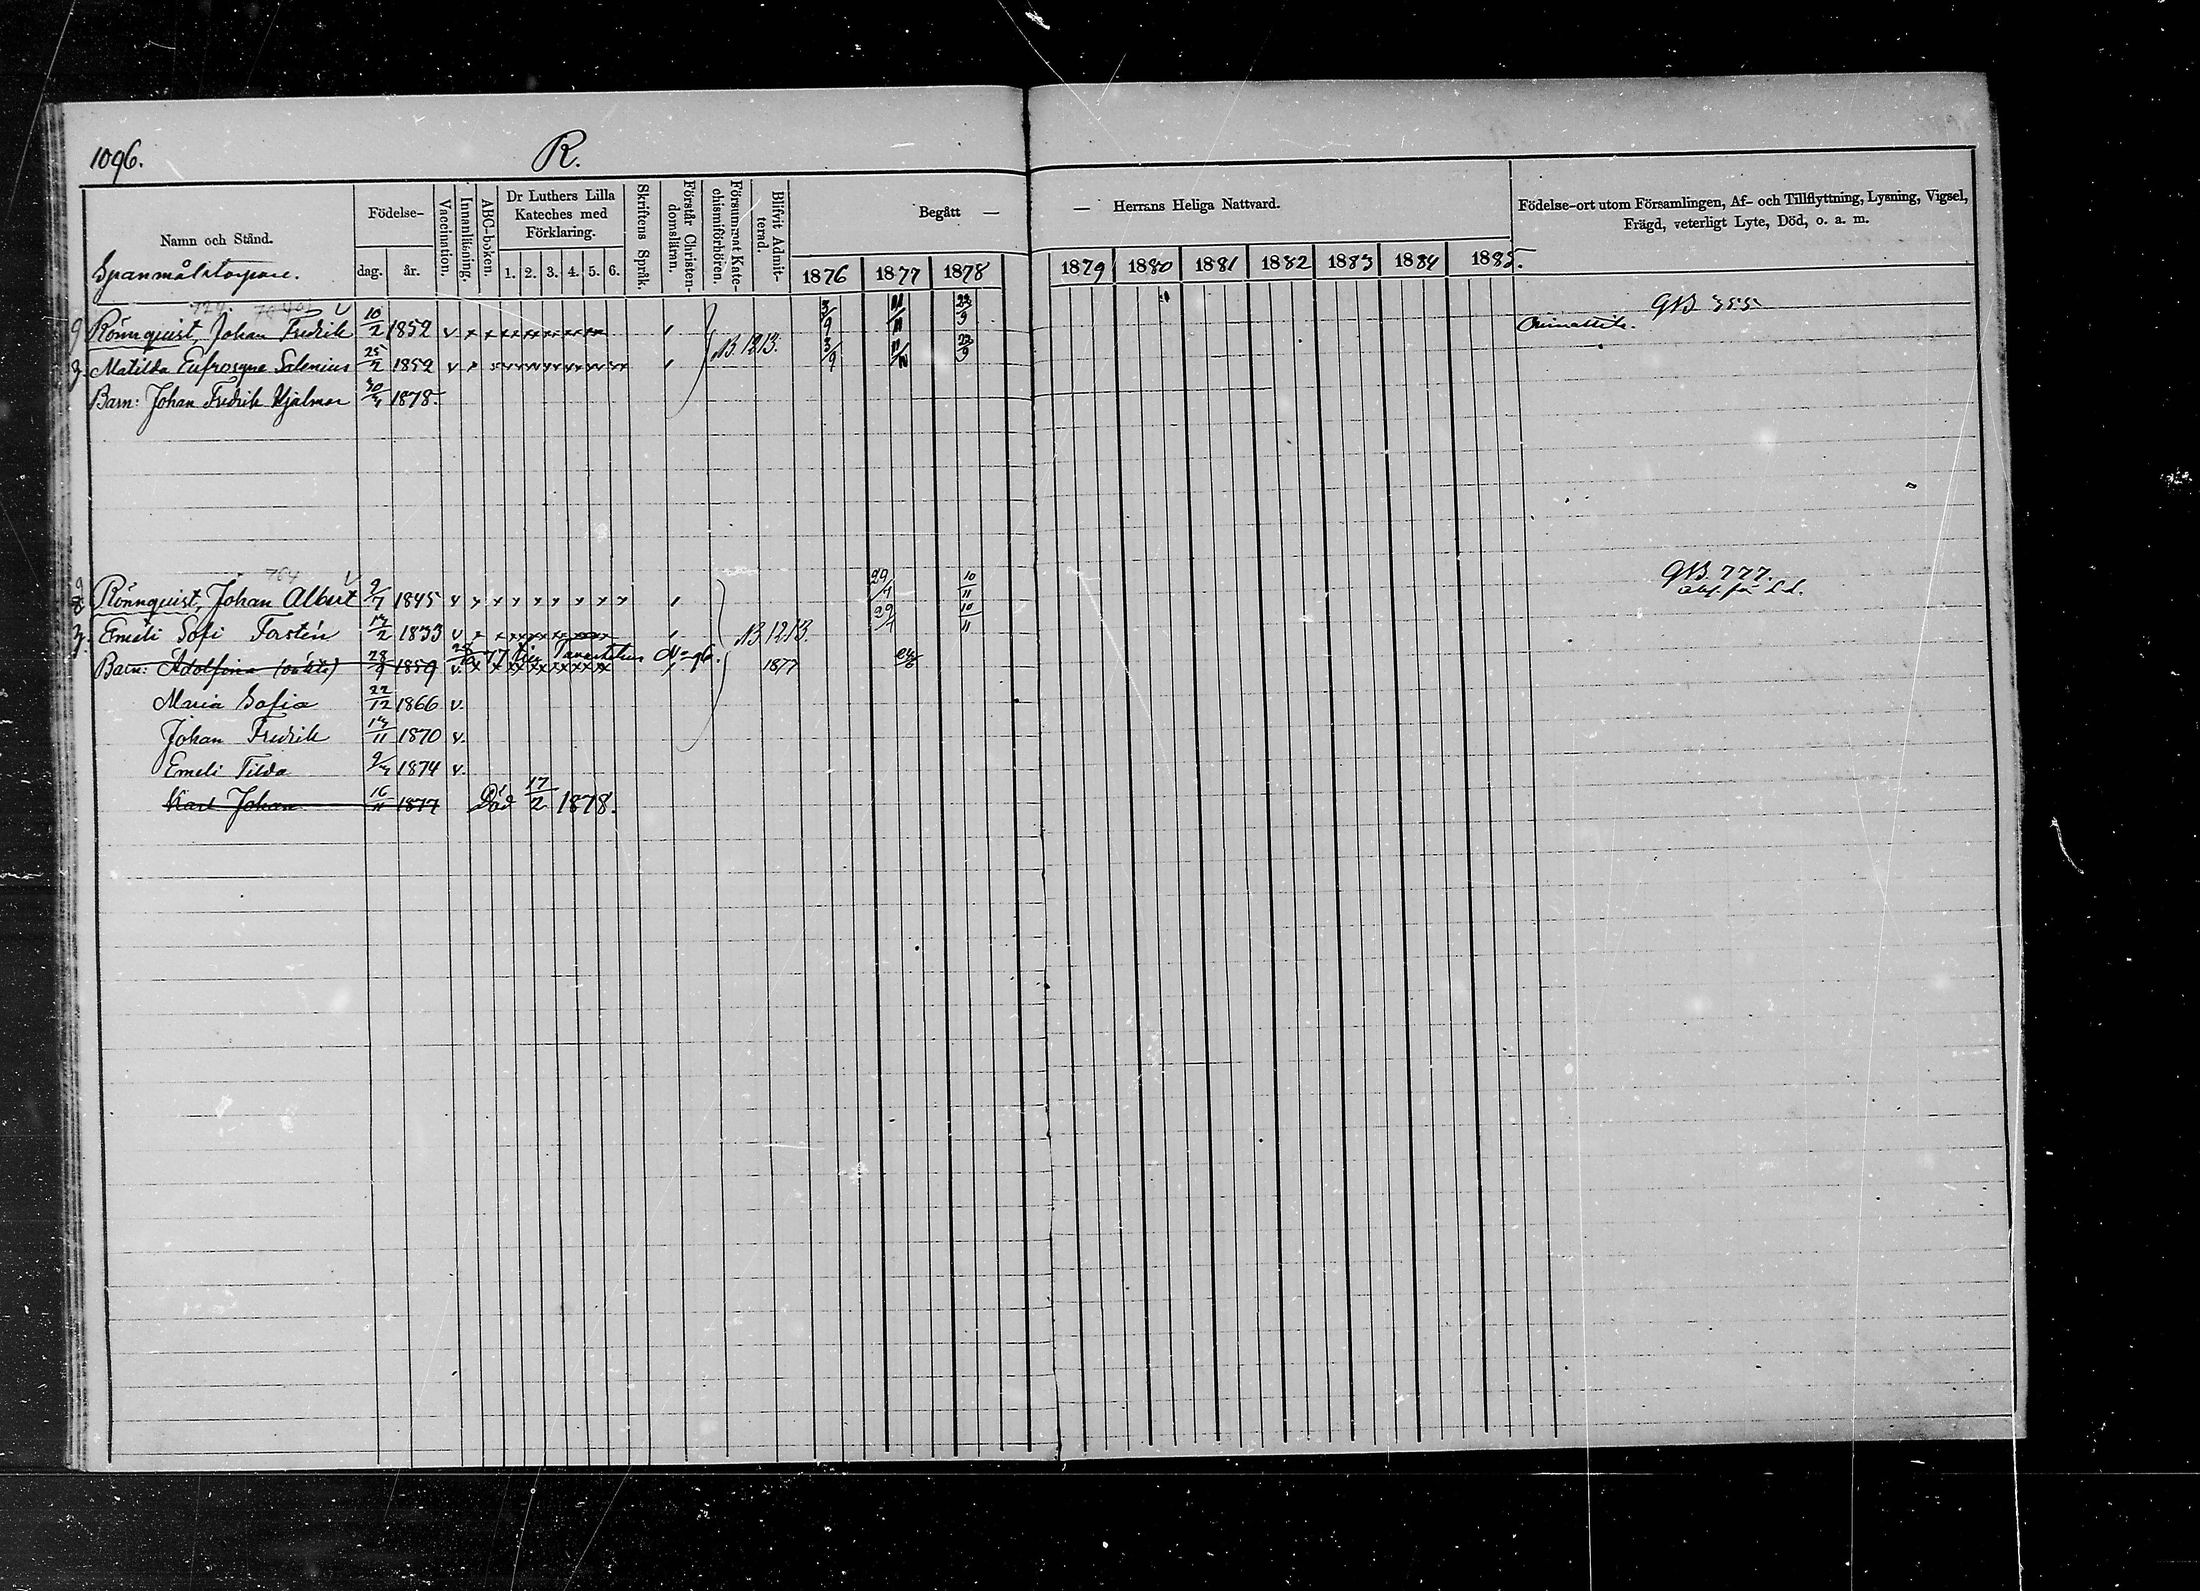 1096.
R.
Namn och Stånd.
Födelse-
dag.
år.
Vaccination.
Innanläsning.
ABC-boken.
Dr Luthers Lilla Kateches med Förklaring.
1. 2. 3. 4. 5. 6.
Skriftens Språk.
Förstår Christendomsläran.
Försummat Katechismiförhören.
Blifvit Admitterad.
Begått —
— Herrans Heliga Nattvard.
1876 1877 1878 1879 1880 1881 1882 1883 1884 1885.
Födelse-ort utom Församlingen, Af- och Tillflyttning, Lysning, Vigsel, Frägd, veterligt Lyte, Död, o. a. m.
729.
GB 355
Rönnquist, Johan Fredrik 10/2 1852 v x x x x x x x x 3/9 11/11 23/9
Matilda Eufrosyne Salenius 25/2 1852 v x x x x x x x x N. 1213. 3/9 11/11 23/9
Barn: Johan Fredrik Hjalmar 1878.
764
GB. 777.
Rönnquist, Johan Albert 9/7 1845 v x x x x x x x x 29/4 10/11
Emeli Sofi Forstén 1833 v x x x x x x x x N. 1213. 29/4 10/11
Barn: Adolfina (oäkta) 28/9 1859 v. x x x x x x x x 77 Tavastehus No 96. 1877
Maria Sofia 22/12 1866 v.
Johan Fredrik 1870 v.
Emeli Tilda 1874 v.
Karl Johan 16/11 1877 Död 17/2 1878.